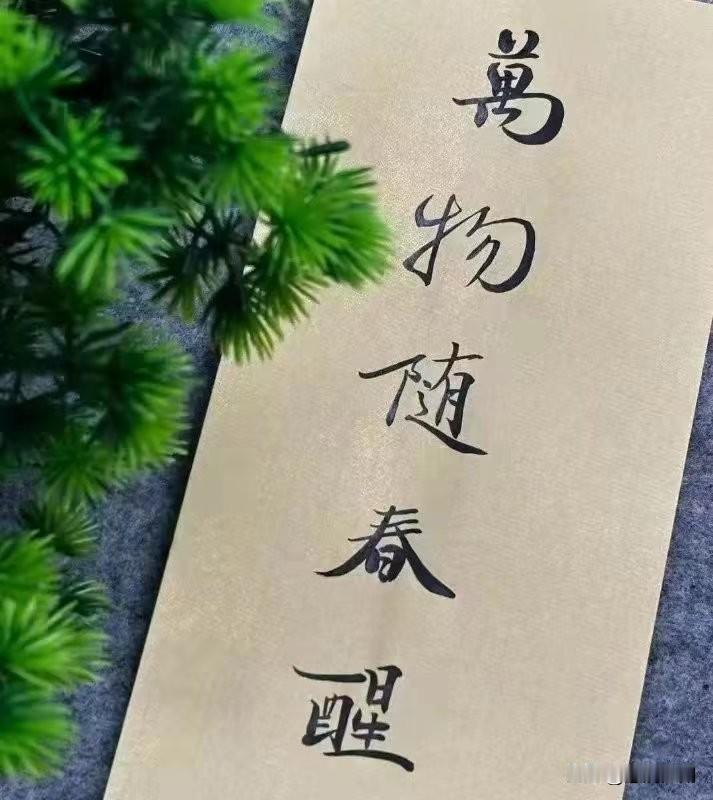 萬物随春醒